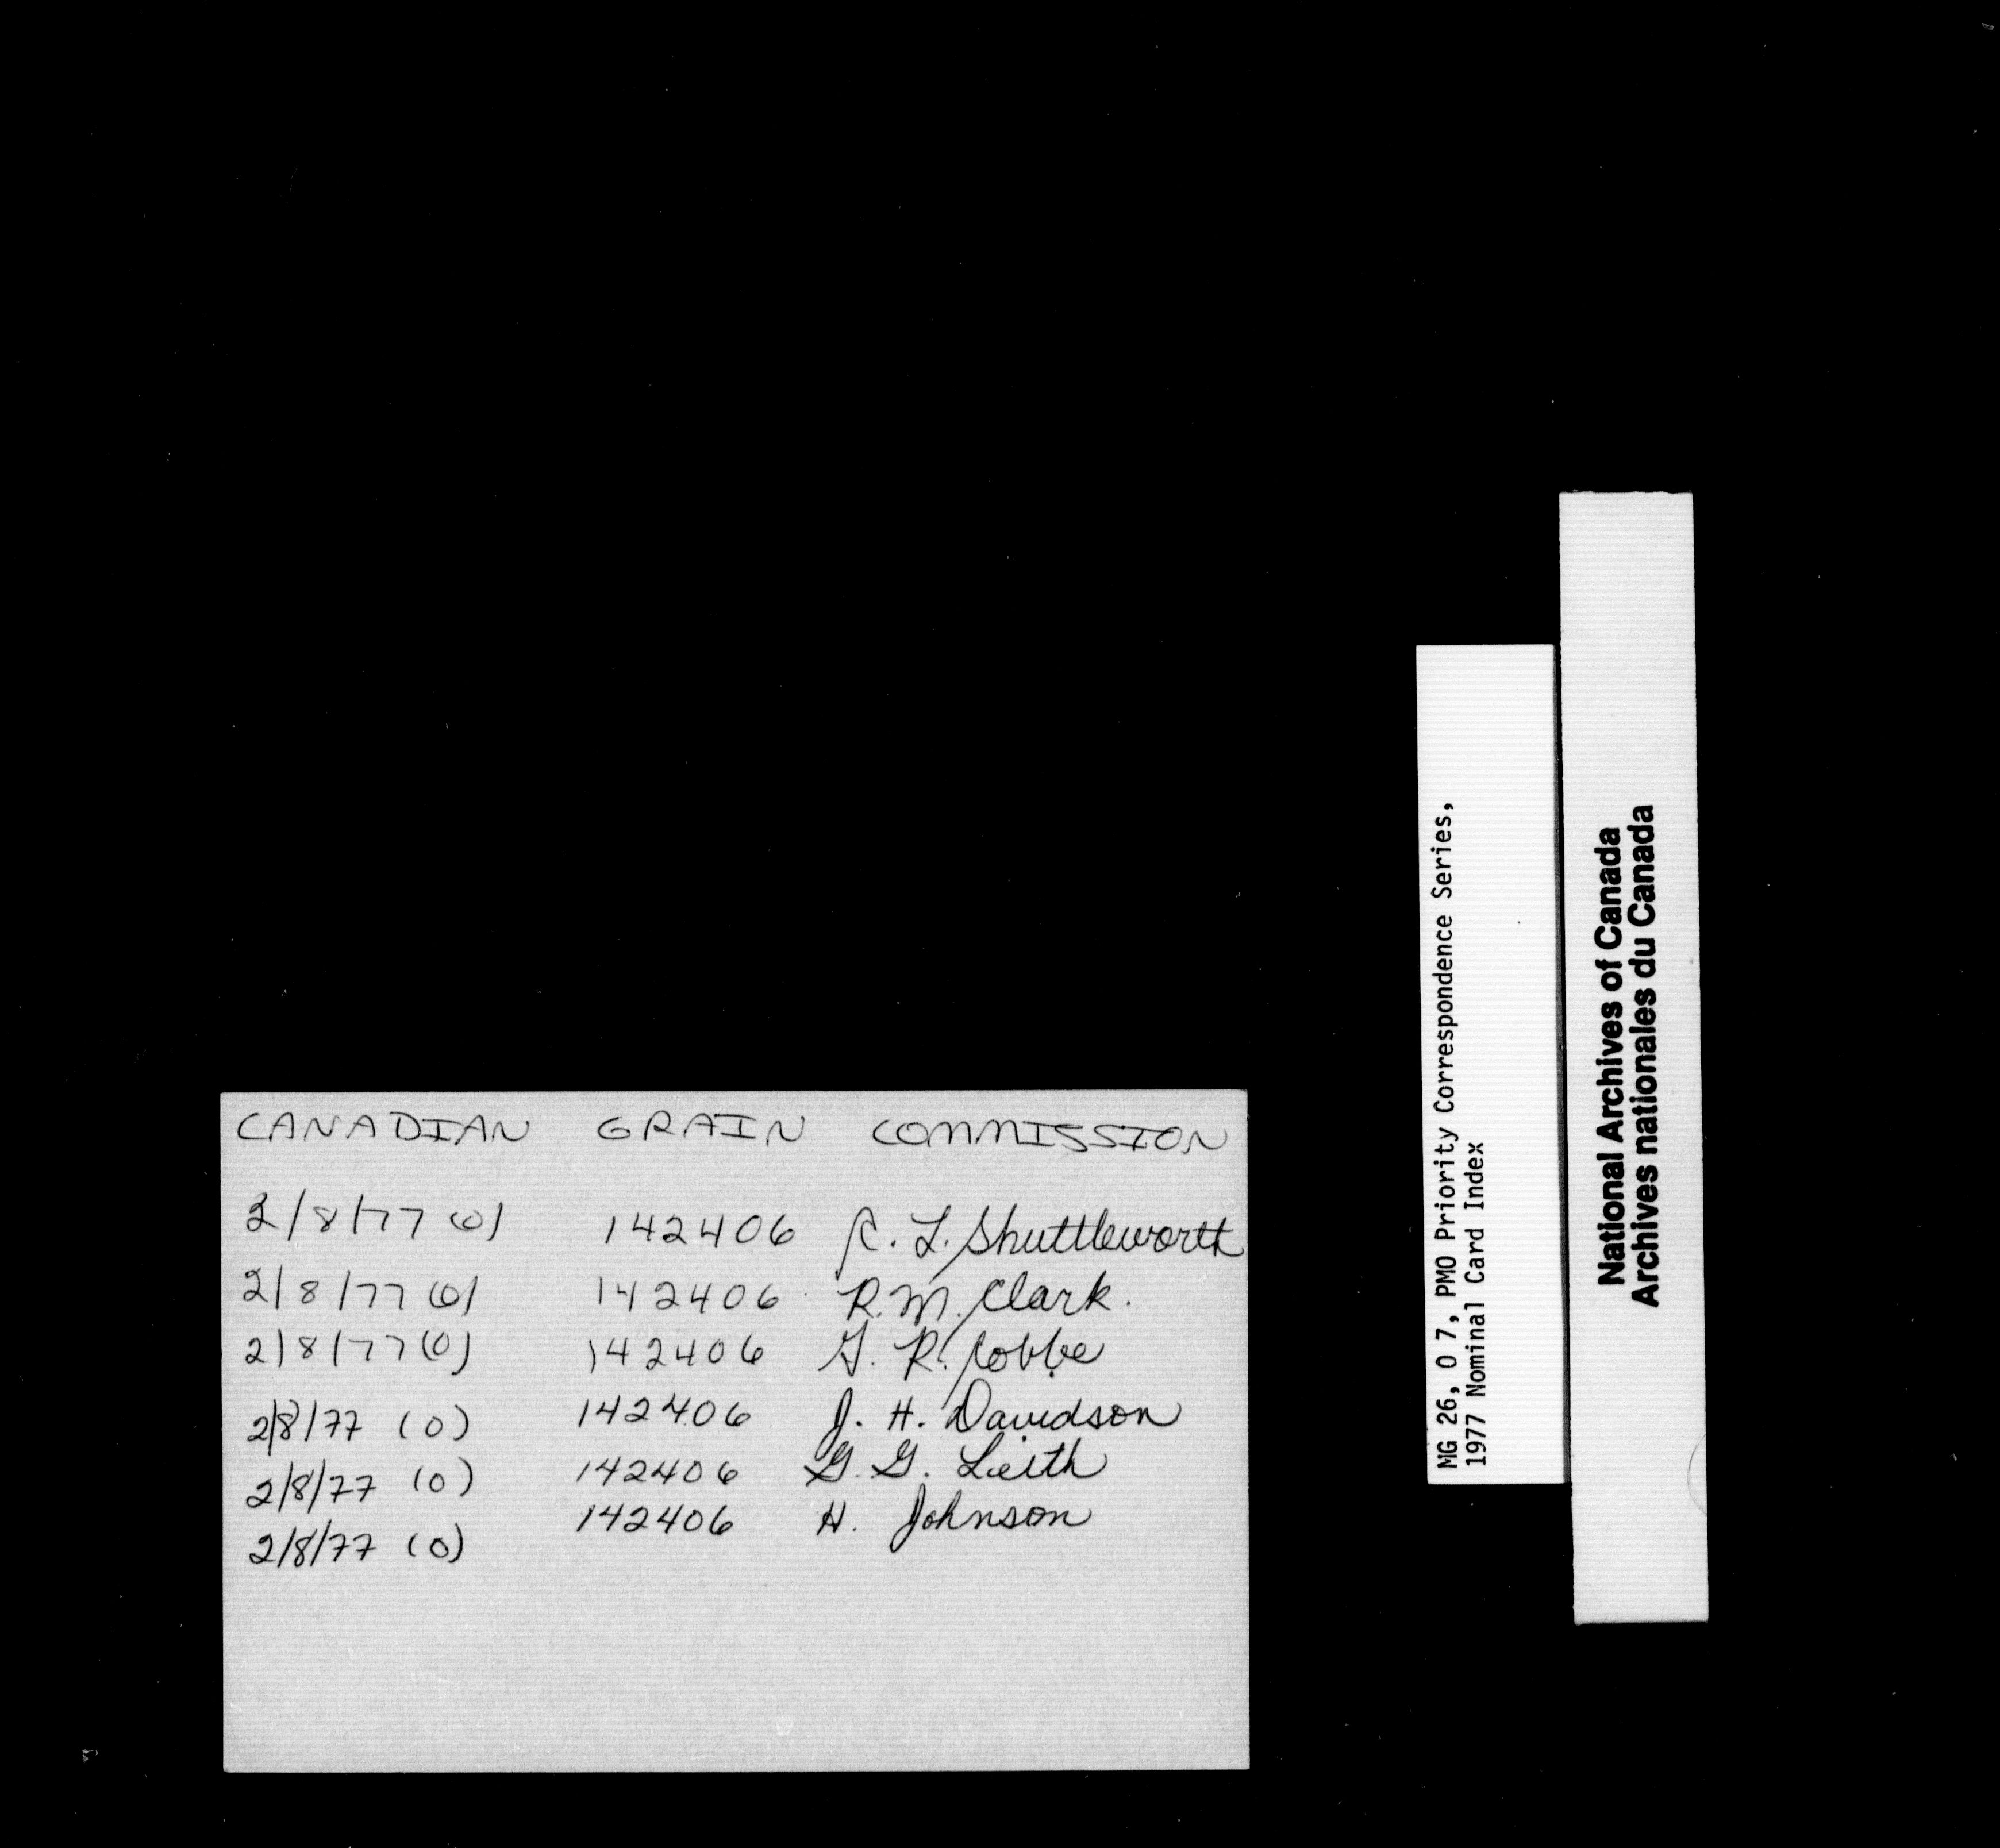 CANADIAN GRAIN COMMISSION
2/8/77 (0) 142406 C. L. Shuttleworth
2/8/77 (0) 142406 R. M. Clark.
2/8/77 (0) 142406 G. R. Cobbe
2/8/77 (0) 142406 J. H. Davidson
2/8/77 (0) 142406 G. G. Leith
2/8/77 (0) 142406 H. Johnson
MG 26, O 7, PMO Priority Correspondence Series,
1977 Nominal Card Index
National Archives of Canada
Archives nationales du Canada